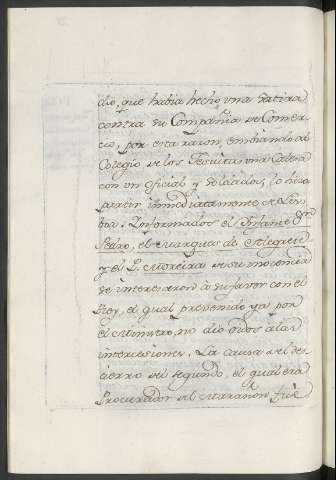 dio, que habia hecho una satira
contra su Compañia de Comer-
cio, por esta razon, embiando al
Colegio de los Jesuitas una Calesa
con un oficial y soldados, lo hizo
partir inmediatamente de Lis-
boa. Informados el Infante Dn
Pedro, el Marques de Alegrete
y el P. Moreira de su inocencia
se interesaron à su favor con el
Rey, el qual prevenido ya por
el Ministro, no dio oidos à las
intercesiones. La causa del des-
tierro del segundo, el qual era
Procurador del Marañon, fuè